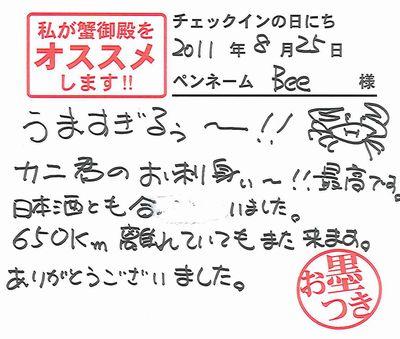 私が蟹御殿を
オススメ
します!!
チェックインの日にち
2011 年 8 月 25 日
ペンネーム Bee 様
うますぎるぅ〜!!
カニ君のお刺身ぃ〜!!最高です。
日本酒とも合 いました。
650Km 離れていてもまた来ます。
ありがとうございました。
お墨つき